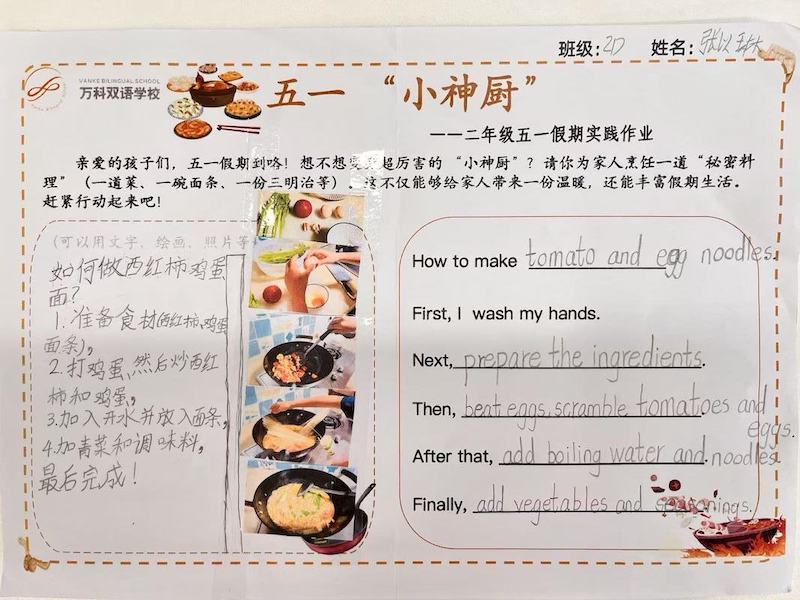 班级: 2D 姓名:
VANKE BILINGUAL SCHOOL
万科双语学校
五一 “小神厨”
——二年级五一假期实践作业
亲爱的孩子们，五一假期到咯！想不想变 超厉害的“小神厨”？请你为家人烹饪一道“秘密料
理”（一道菜、一碗面条、一份三明治等）。这不仅能够给家人带来一份温暖，还能丰富假期生活。
赶紧行动起来吧！
(可以用文字、绘画、照片等
如何做西红柿鸡蛋
面？
1.准备食材(西红柿,鸡蛋
面条),
2.打鸡蛋,然后炒西红
柿和鸡蛋,
3.加入开水并放入面条,
4.加青菜和调味料,
最后完成！
How to make tomato and egg noodles.
First, I wash my hands.
Next, prepare the ingredients.
Then, beat eggs, scramble tomatoes and
eggs.
After that, add boiling water and noodles.
Finally, add vegetables and seasonings.